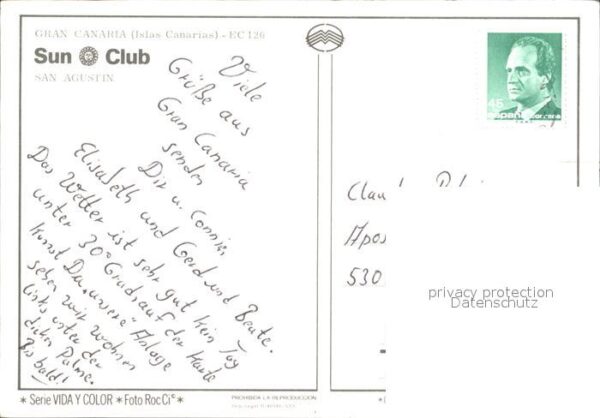 GRAN CANARIA (Islas Canarias) - EC 126
Sun Club
SAN AGUSTIN
Viele
Grüße aus
Gran Canaria
senden
Dir u. Connie
Elisabeth und Gerd und Beate.
Das Wetter ist sehr gut kein Tag
unter 30° Grad, auf der Karte
kannst Du „unsere" Anlage
sehen wir wohnen
links unter der
dicken Palme.
Bis bald!
45
españa
Apos
530
privacy protection
Datenschutz
* Serie VIDA Y COLOR * Foto Roc Ci® *
PROHIBIDA LA REPRODUCCION